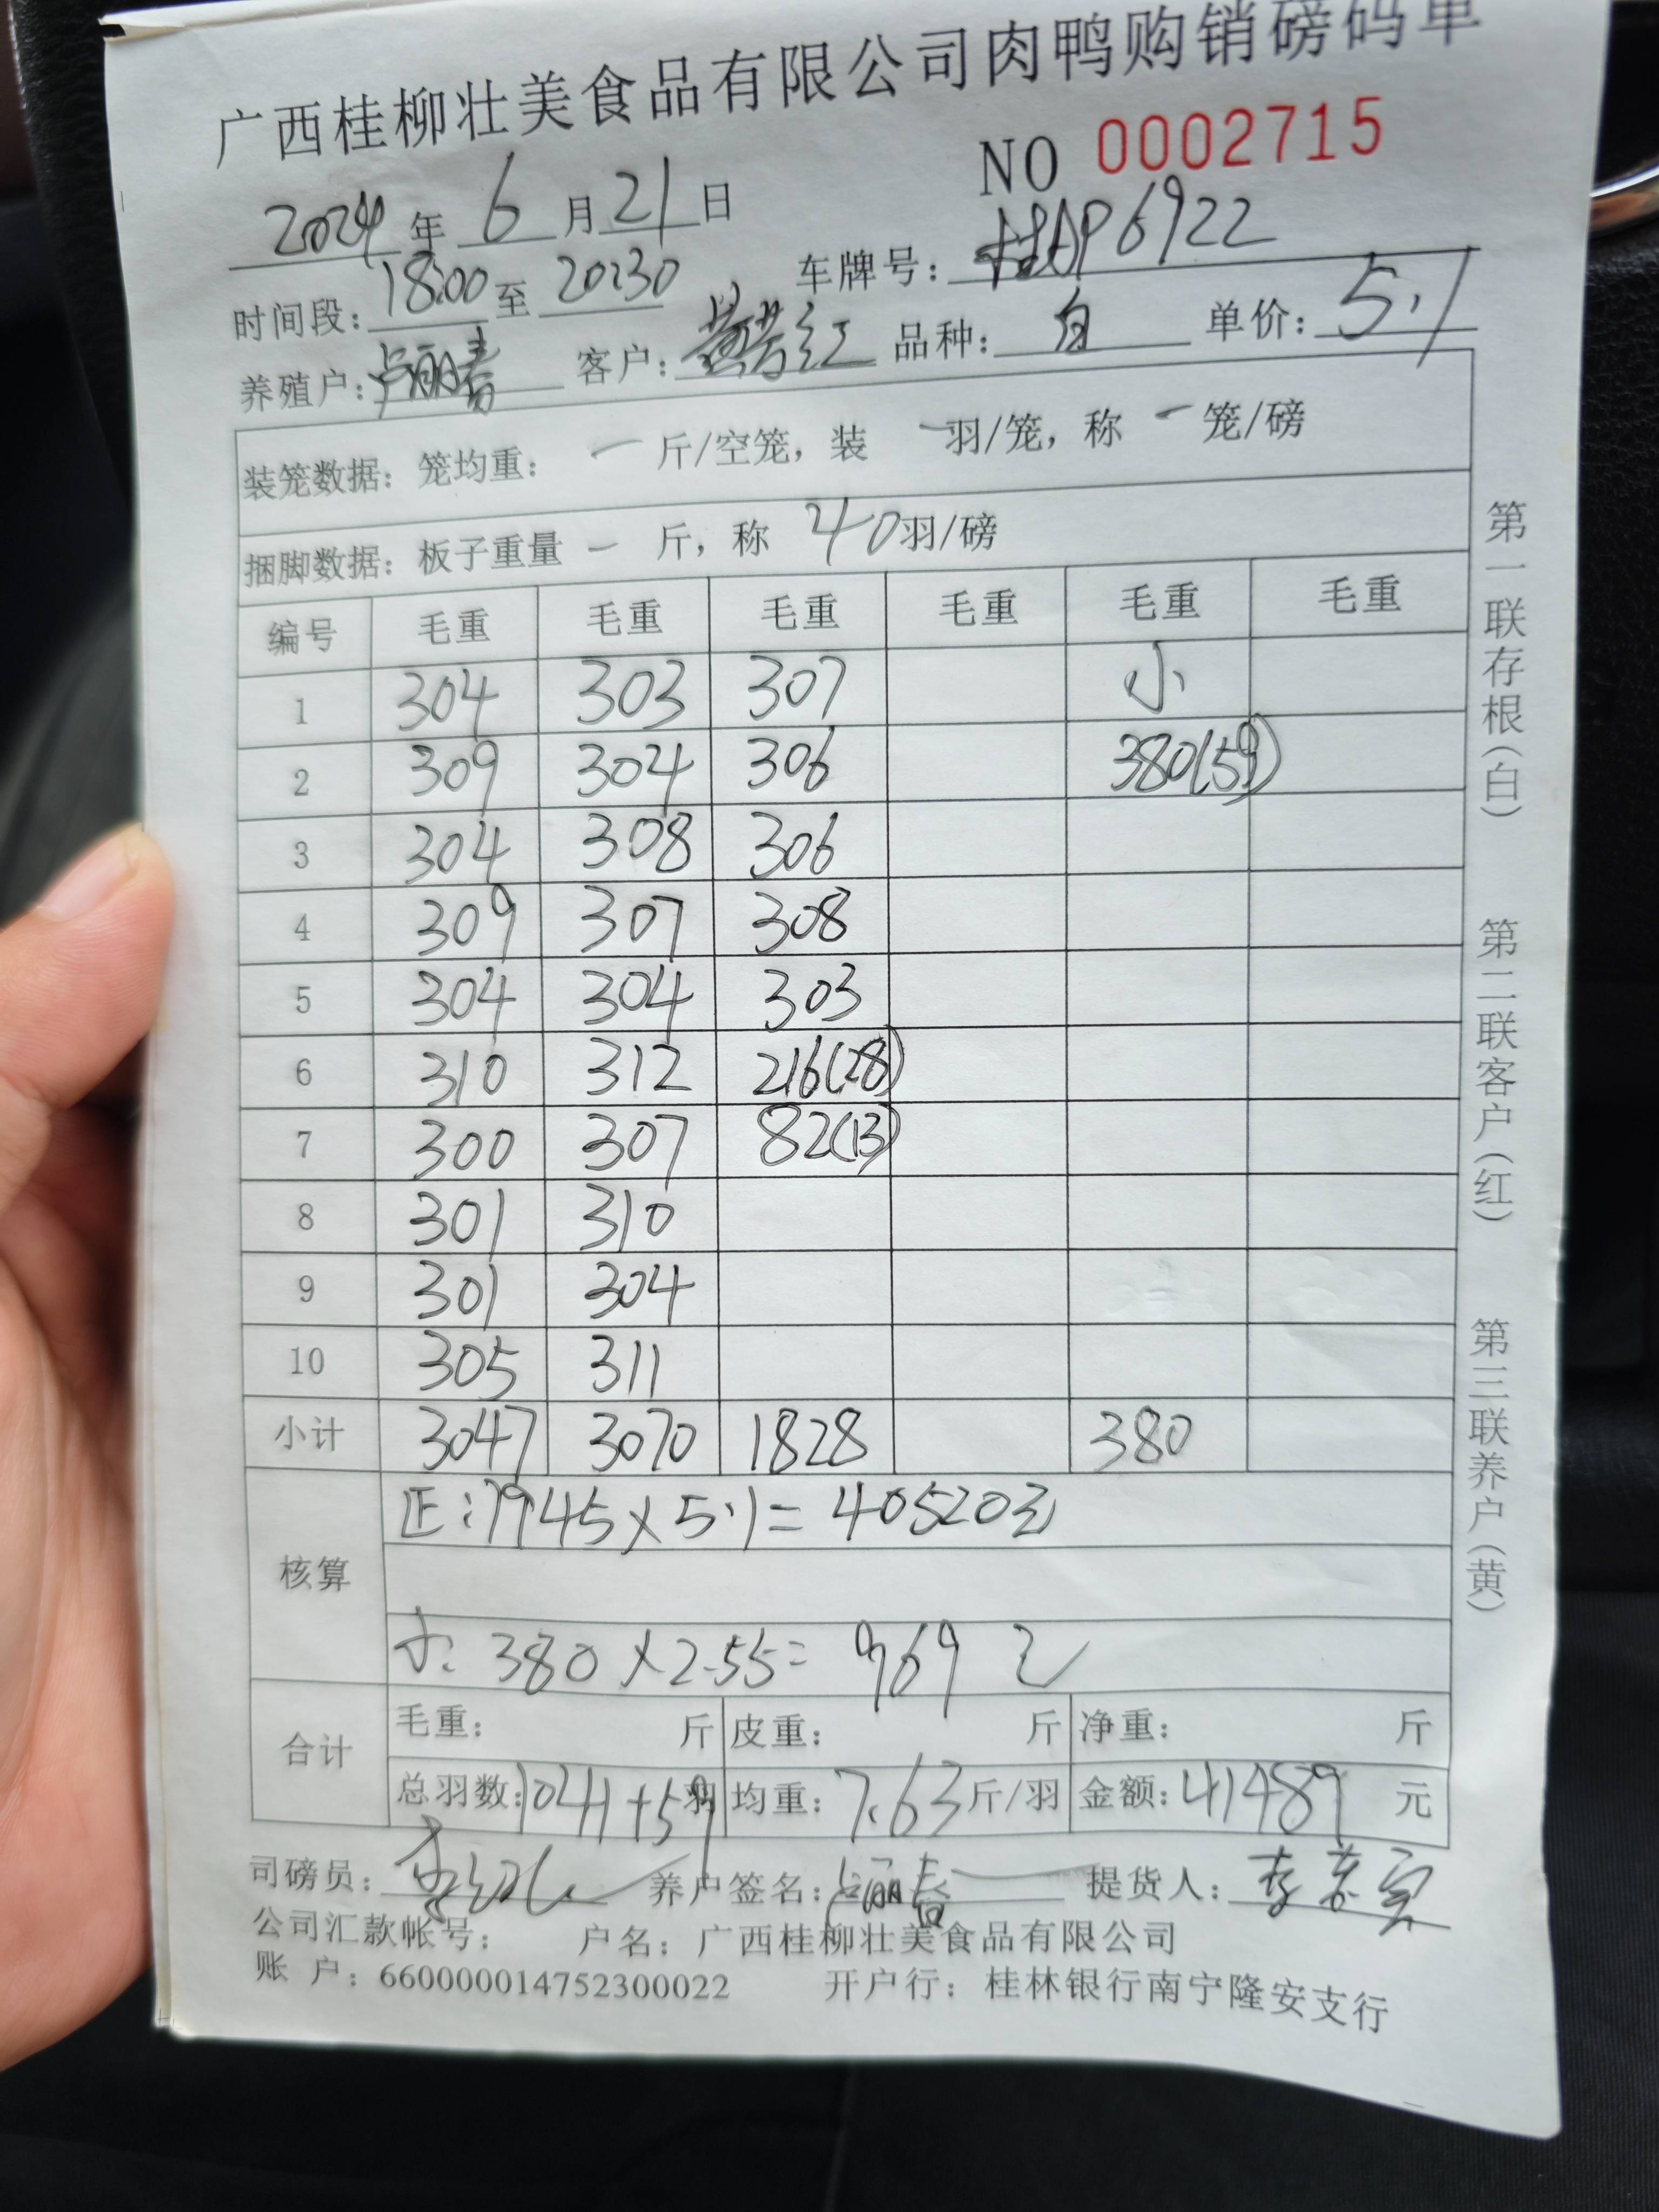 广西桂柳壮美食品有限公司肉鸭购销磅码单
NO 0002715
2024年 6 月 21 日
时间段: 18:00 至 20:30 车牌号: 桂AP6922
养殖户: 卢丽春 客户: 黄芳红 品种: 白 单价: 5.1
装笼数据: 笼均重: 一 斤/空笼, 装 一 羽/笼, 称 一 笼/磅
捆脚数据: 板子重量 一 斤, 称 40 羽/磅
编号 毛重 毛重 毛重 毛重 毛重 毛重
1 304 303 307 小
2 309 304 306 380(59)
3 304 308 306
4 309 307 308
5 304 304 303
6 310 312 216(28)
7 300 307 82(13)
8 301 310
9 301 304
10 305 311
小计 3047 3070 1828 380
核算
正: 7945×5.1=40520元
小: 380×2.55= 969 元
合计 毛重: 斤 皮重: 斤 净重: 斤
总羽数: 1041+59 羽 均重: 7.63 斤/羽 金额: 41489 元
司磅员: 养户签名: 卢丽春 提货人:
公司汇款帐号: 户名: 广西桂柳壮美食品有限公司
账 户: 660000014752300022 开户行: 桂林银行南宁隆安支行
第一联存根(白)
第二联客户(红)
第三联养户(黄)